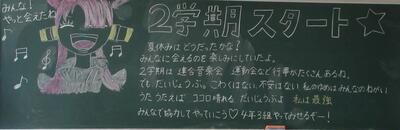 みんな！
やっと会えたね
2学期スタート☆
夏休みはどうだったかな！
みんなに会えるのを楽しみにしていたよ。
2学期は連合音楽会 運動会など行事がたくさんあるね。
でも、だいじょうぶ。こわくはない、不安はない 私のゆめはみんなのねがい
うたうたえば ココロ晴れる だいじょうぶよ 私は最強
みんなで協力してやっていこう♡4年3組やってみせるぞー！